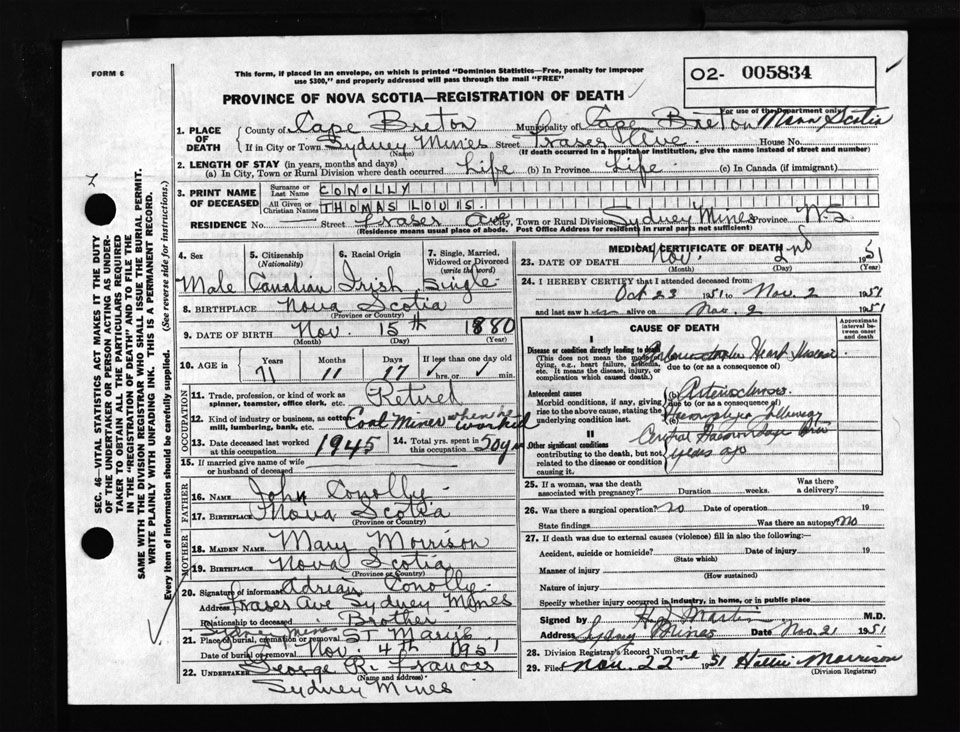 FORM 6
This form, if placed in an envelope, on which is printed "Dominion Statistics—Free, penalty for improper
use $300," and properly addressed will pass through the mail "FREE"
O2- 005834
PROVINCE OF NOVA SCOTIA—REGISTRATION OF DEATH
For use of the Department only
1. PLACE OF DEATH { County of Cape Breton Municipality of Cape Breton Nova Scotia
If in City or Town Sydney Mines Street Fraser Ave House No.
(Name) (If death occurred in a hospital or institution, give the name instead of street and number)
2. LENGTH OF STAY (in years, months and days)
(a) In City, Town or Rural Division where death occurred Life (b) In Province Life (c) In Canada (if immigrant)
3. PRINT NAME OF DECEASED { Surname or Last Name CONOLLY
All Given or Christian Names THOMAS LOUIS.
RESIDENCE No. — Street Fraser Ave City, Town or Rural Division Sydney Mines Province N-S
(Residence means usual place of abode. Post Office Address for residents in rural parts not sufficient)
4. Sex 5. Citizenship (Nationality) 6. Racial Origin 7. Single, Married, Widowed or Divorced (write the word)
Male Canadian Irish Single
8. BIRTHPLACE Nova Scotia
(Province or Country)
9. DATE OF BIRTH Nov. 15th 1880
(Month) (Day) (Year)
10. AGE in { Years Months Days If less than one day old
71 11 17 hrs. or min.
OCCUPATION
11. Trade, profession, or kind of work as spinner, teamster, office clerk, etc. Retired
12. Kind of industry or business, as cotton mill, lumbering, bank, etc. Coal Miner when he worked
13. Date deceased last worked at this occupation 1945 14. Total yrs. spent in this occupation 50 yrs
15. If married give name of wife or husband of deceased
FATHER
16. NAME John Conolly
17. BIRTHPLACE Nova Scotia
(Province or Country)
MOTHER
18. MAIDEN NAME Mary Morrison
19. BIRTHPLACE Nova Scotia
(Province or Country)
20. Signature of informant Adrian Conolly
Address Fraser Ave Sydney Mines
Relationship to deceased Brother
Sydney Mines
21. Place of burial, cremation or removal ST Mary's
Date of burial or removal Nov. 4th 1951
22. UNDERTAKER George R. Frances
(Name and address)
Sydney Mines
MEDICAL CERTIFICATE OF DEATH
23. DATE OF DEATH Nov. 2nd 1951
(Month) (Day) (Year)
24. I HEREBY CERTIFY that I attended deceased from:
Oct 23 1951 to Nov. 2 1951
and last saw h alive on Nov. 2 1951
CAUSE OF DEATH
Approximate interval between onset and death
I
Disease or condition directly leading to death
(This does not mean the mode of dying, e.g., heart failure, asthenia, etc. It means the disease, injury, or complication which caused death.)
Heart Disease
due to (or as a consequence of)
Antecedent causes
Morbid conditions, if any, giving rise to the above cause, stating the underlying condition last.
Arteriosclerosis
due to (or as a consequence of)
II
Other significant conditions
contributing to the death, but not related to the disease or condition causing it.
years ago
25. If a woman, was the death associated with pregnancy? Duration weeks. Was there a delivery?
26. Was there a surgical operation? no Date of operation 19
State findings Was there an autopsy? No
27. If death was due to external causes (violence) fill in also the following:—
Accident, suicide or homicide? Date of injury 19
(State which)
Manner of injury
(How sustained)
Nature of injury
Specify whether injury occurred in industry, in home, or in public place
Signed by H. J. Martin M.D.
Address Sydney Mines Date Nov. 21 1951
28. Division Registrar's Record Number
29. Filed Nov. 22nd 1951 Hattie Morrison
(Division Registrar)
SEC. 46—VITAL STATISTICS ACT MAKES IT THE DUTY
OF THE UNDERTAKER OR PERSON ACTING AS UNDER-
TAKER TO OBTAIN ALL THE PARTICULARS REQUIRED
IN THE "REGISTRATION OF DEATH" AND TO FILE THE
SAME WITH THE DIVISION REGISTRAR WHO SHALL ISSUE THE BURIAL PERMIT.
WRITE PLAINLY WITH UNFADING INK. THIS IS A PERMANENT RECORD.
Every item of information should be carefully supplied. (See reverse side for instructions.)